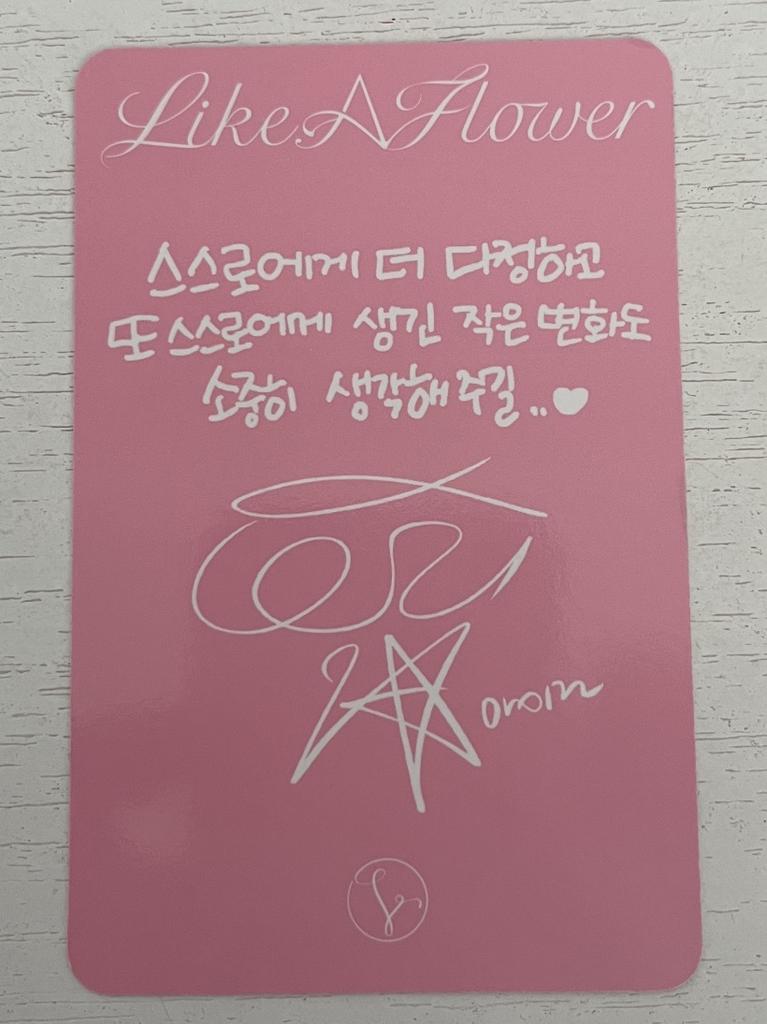 Like A Flower
스스로에게 더 다정하고
또 스스로에게 생긴 작은 변화도
소중히 생각해 주길..♥
아이린